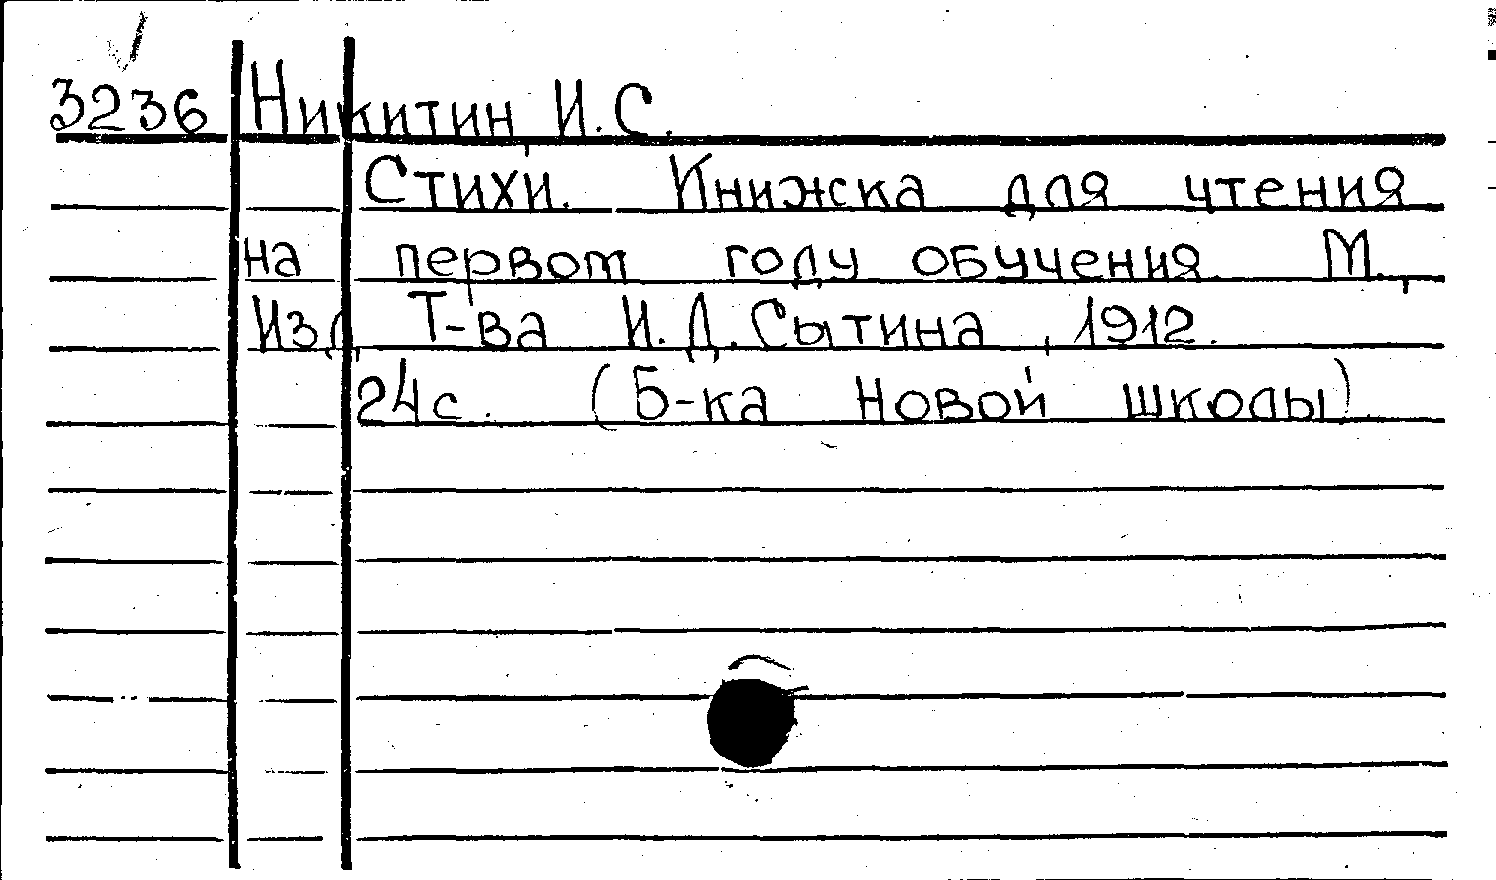 3236 Никитин, И.С.
Стихи. Книжка для чтения
на первом году обучения. М.,
Изд. Т-ва И.Д. Сытина, 1912.
24с. (Б-ка Новой школы).